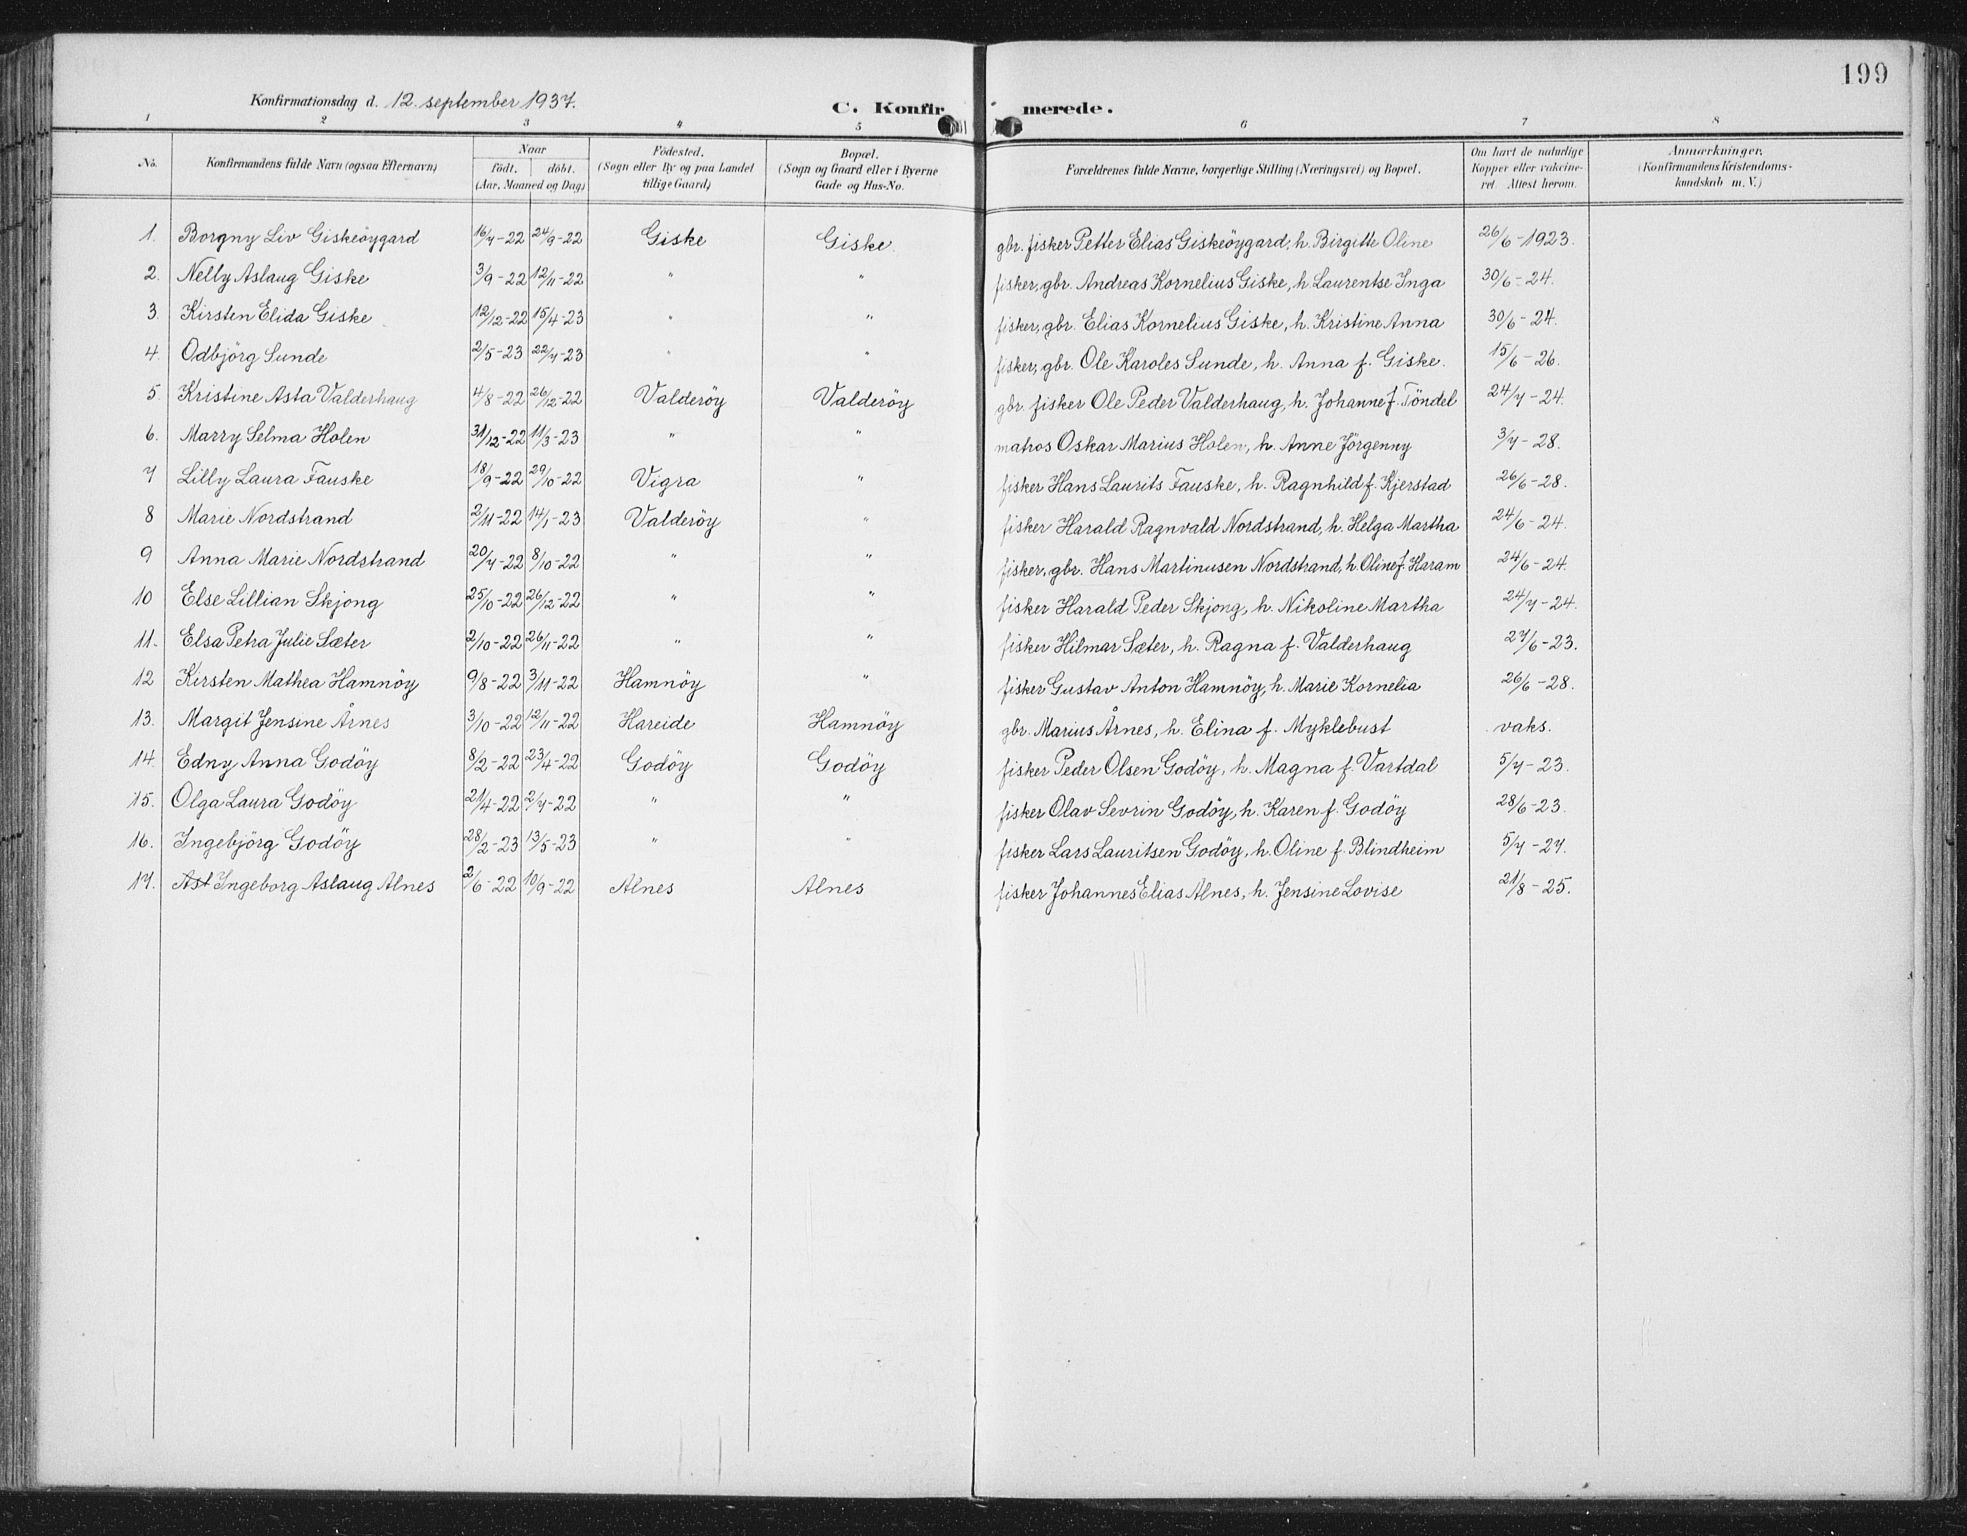 199
Konfirmationsdag d. 12. september 1937.
C. Konfirmerede.
1 2 3 4 5 6 7 8
No. Konfirmandens fulde Navn (ogsaa Efternavn) Naar födt. döbt. (Aar, Maaned og Dag) Födested. (Sogn eller By og paa Landet tillige Gaard) Bopæl. (Sogn og Gaard eller i Byerne Gade og Hus-No. Forældrenes fulde Navne, borgerlige Stilling (Næringsvei) og Bopæl. Om havt de naturlige Kopper eller vakcineret. Attest herom. Anmærkninger. (Konfirmandens Kristendomskundskab m. V.)
1. Borgny Liv Giskeöygard 16/7-22 24/9-22 Giske Giske. gbr. fisker Petter Elias Giskeöygard, h. Birgitte Oline 26/6-1923.
2. Nelly Aslaug Giske 3/9-22 12/11-22 " " fisker, gbr. Andreas Kornelius Giske, h Laurentse Inga 30/6-24.
3. Kirsten Elida Giske 12/12-22 15/4-23 " " fisker, gbr. Elias Kornelius Giske, h. Kristine Anna 30/6-24.
4. Odbjörg Sunde 2/5-23 22/7-23 " " fisker, gbr. Ole Karoles Sunde, h. Anna f. Giske. 15/6-26.
5. Kristine Asta Valderhaug 4/8-22 26/12-22 Valderöy Valderöy gbr. fisker Ole Peder Valderhaug, h. Johanne f. Töndel 24/7-24.
6. Marry Selma Holen 31/12-22 11/3-23 " " matros Oskar Marius Holen, h. Anne Jörgenny 3/7-28.
7 Lilly Laura Fauske 18/9-22 29/10-22 Vigra " fisker Hans Laurits Fauske, h. Ragnhild f. Kjerstad 26/6-28.
8 Marie Nordstrand 2/11-22 14/1-23 Valderöy " fisker Harald Ragnvald Nordstrand, h. Helga Martha 24/6-24.
9 Anna Marie Nordstrand 20/7-22 8/10-22 " " fisker, gbr. Hans Martinusen Nordstrand, h. Oline f. Haram 24/6-24.
10 Else Lillian Skjong 25/10-22 26/12-22 " " fisker Harald Peder Skjong, h. Nikoline Martha 24/7-24.
11. Elsa Petra Julie Sæter 2/10-22 26/11-22 " " fisker Hilmar Sæter, h. Ragna f. Valderhaug 27/6-23.
12 Kirsten Mathea Hamnöy 9/8-22 3/11-22 Hamnöy " fisker Gustav Anton Hamnöy, h. Marie Kornelia 26/6-28.
13. Margit Jensine Årnes 3/10-22 12/11-22 Hareide Hamnöy gbr. Marius Årnes, h. Elina f. Myklebust vaks.
14. Edny Anna Godöy 8/2-22 23/4-22 Godöy Godöy fisker Peder Olsen Godöy, h. Magna f. Vartdal 5/7-23.
15. Olga Laura Godöy 21/4-22 2/7-22 " " fisker Olav Sevrin Godöy, h. Karen f. Godöy 28/6-23.
16. Ingebjörg Godöy 28/2-23 13/5-23 " " fisker Lars Lauritsen Godöy, h. Oline f. Blindheim 5/7-27.
17. Ast Ingeborg Aslaug Alnes 2/6-22 10/9-22 Alnes Alnes fisker Johannes Elias Alnes, h. Jensine Lovise 21/8-25.